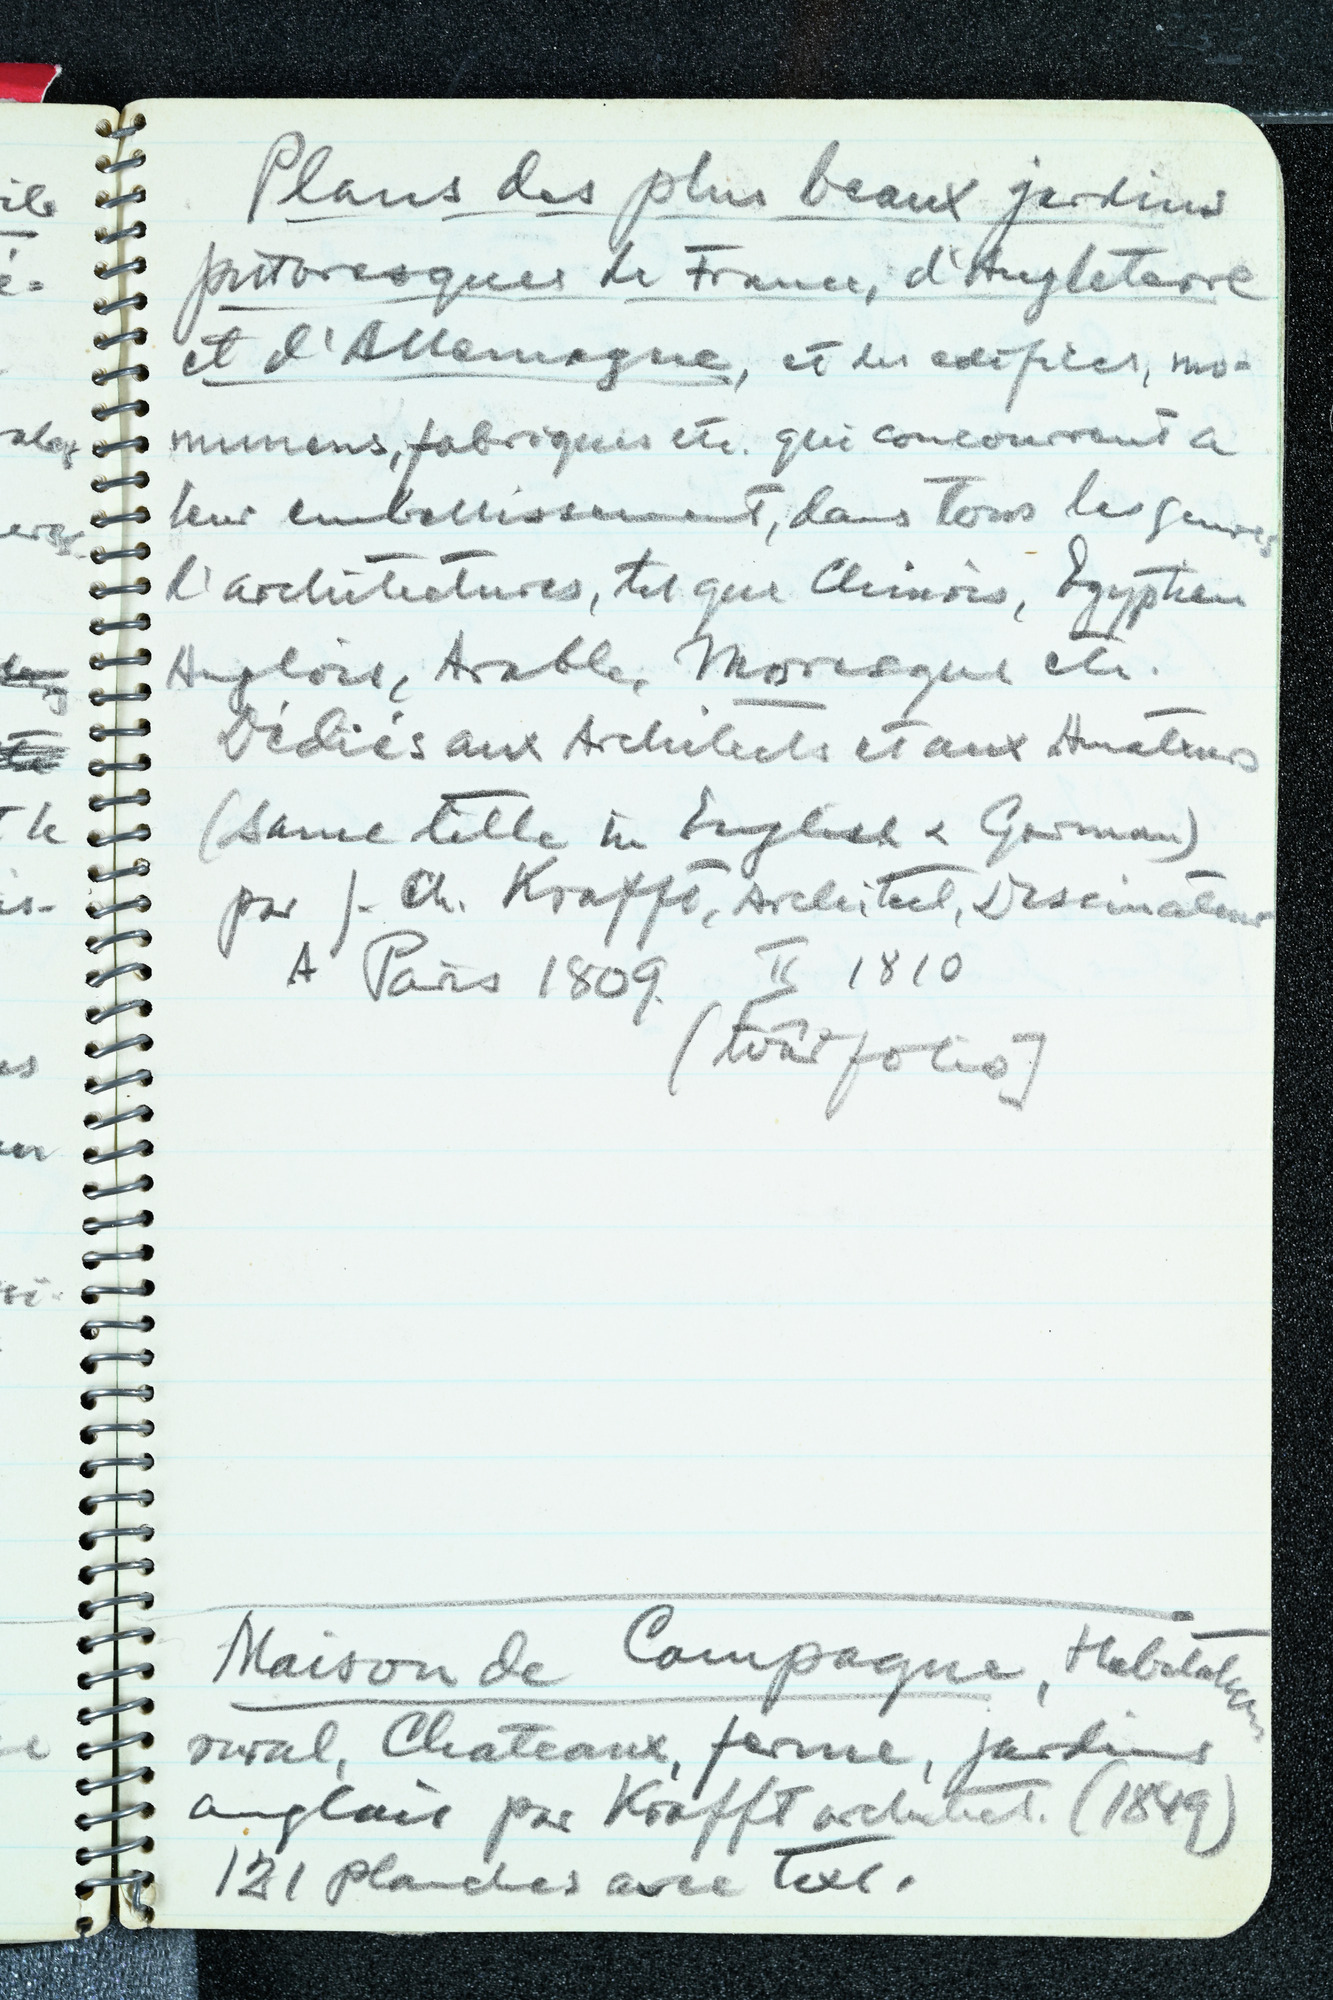 Plans des plus beaux jardins
pittoresques de France, d'Angleterre
et d'Allemagne, et des edifices, mo-
numens, fabriques etc. qui concourrent a
leur embellissement, dans tous les genres
d'architectures, tel que Chinois, Egyptien
Anglois, Arabe, Moresque etc.
Dédiés aux Architects et aux Amateurs
(same title in English & German)
par J. Ch. Krafft, Architect, Dessinateur
A Paris 1809. II 1810
folio]
Maison de Campagne, Habitations
rural, Chateaux, ferme, jardins
anglais par Krafft architect. (1849)
121 planches avec text.